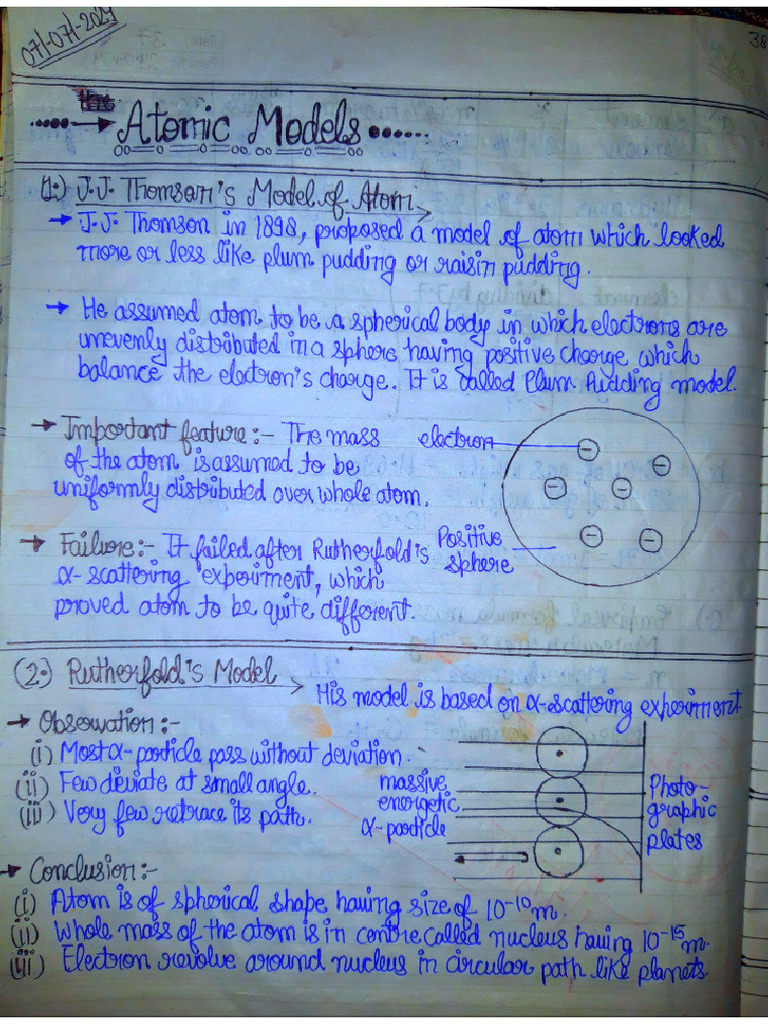 07/07/2024
38
Atomic Models
(1.) J.J. Thomson's Model of Atom
→ J.J. Thomson in 1898, proposed a model of atom which looked
more or less like plum pudding or raisin pudding.
→ He assumed atom to be a spherical body in which electrons are
unevenly distributed in a sphere having positive charge which
balance the electron's charge. It is called Plum Pudding model.
→ Important feature:- The mass
of the atom is assumed to be
uniformly distributed over whole atom.
electron
→ Failure:- It failed after Rutherfold's
α-scattering experiment, which
proved atom to be quite different.
Positive
sphere
(2.) Rutherfold's Model
His model is based on α-scattering experiment
→ Observation:-
(i) Most α-particle pass without deviation.
(ii) Few deviate at small angle.
(iii) Very few retrace its path.
massive
energetic
α-particle
Photo-
graphic
plates
→ Conclusion:-
(i) Atom is of spherical shape having size of 10⁻¹⁰ m.
(ii) Whole mass of the atom is in centre called nucleus having 10⁻¹⁵ m.
(iii) Electron revolve around nucleus in circular path like planets.